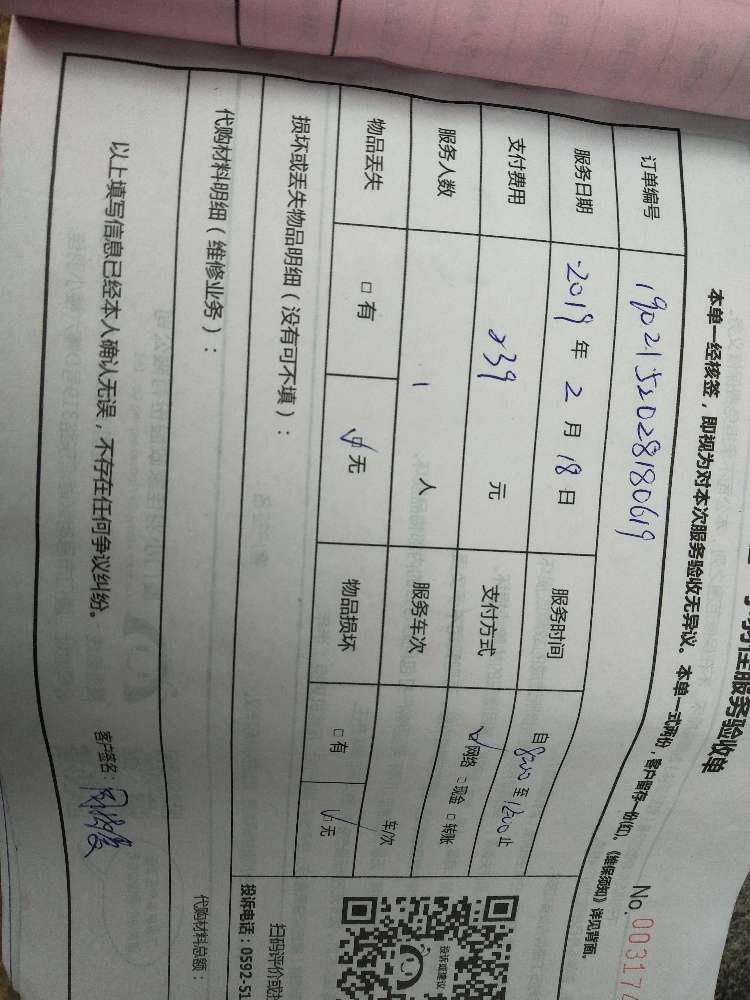 服务验收单
No. 00317
本单一经核签，即视为对本次服务验收无异议。本单一式两份，客户留存一份(红)。《维保须知》详见背面。
订单编号 190215202818061９
服务日期 2019 年 2 月 18 日 服务时间 自 8:00 至 12:00 止
支付费用 ×39 元 支付方式 网络 □ 现金 □ 转账
服务人数 1 人 服务车次 车/次
物品丢失 □ 有 □ 无 物品损坏 □ 有 □ 无
损坏或丢失物品明细（没有可不填）：
扫码评价或
投诉或建议
投诉电话：0592-51
代购材料明细（维修业务）：
代购材料总额：
以上填写信息已经本人确认无误，不存在任何争议纠纷。
客户签名：